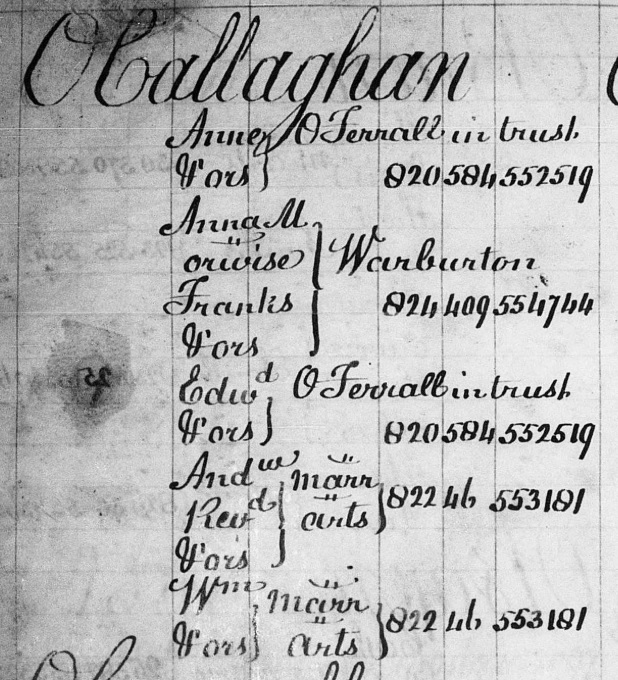 OCallaghan
Anne } O Ferrall in trust
& ors } 820 584 552519
Anna M.
orwise } Warburton
Franks 824 409 554744
& ors
Edwd O Ferrall in trust
& ors } 820 584 552519
Andw marr
Revd } arts } 822 46 553181
& ors
Wm marr
& ors } arts } 822 46 553181
25